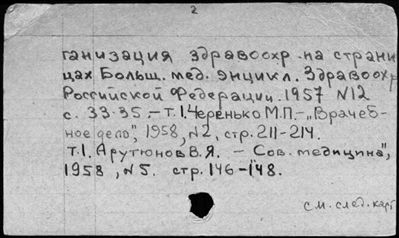 2
ганизация здравоохр. на страни
цах Больш. мед. энцикл. Здравоохр
Российской Федерации. 1957 N12
с. 33-35. – Т.1. Черенько М.П. – „Врачеб-
ное дело", 1958, N2, стр. 211-214.
Т.1. Арутюнов В.Я. – Сов. медицина",
1958, N5. стр. 146-148.
см. след. карт